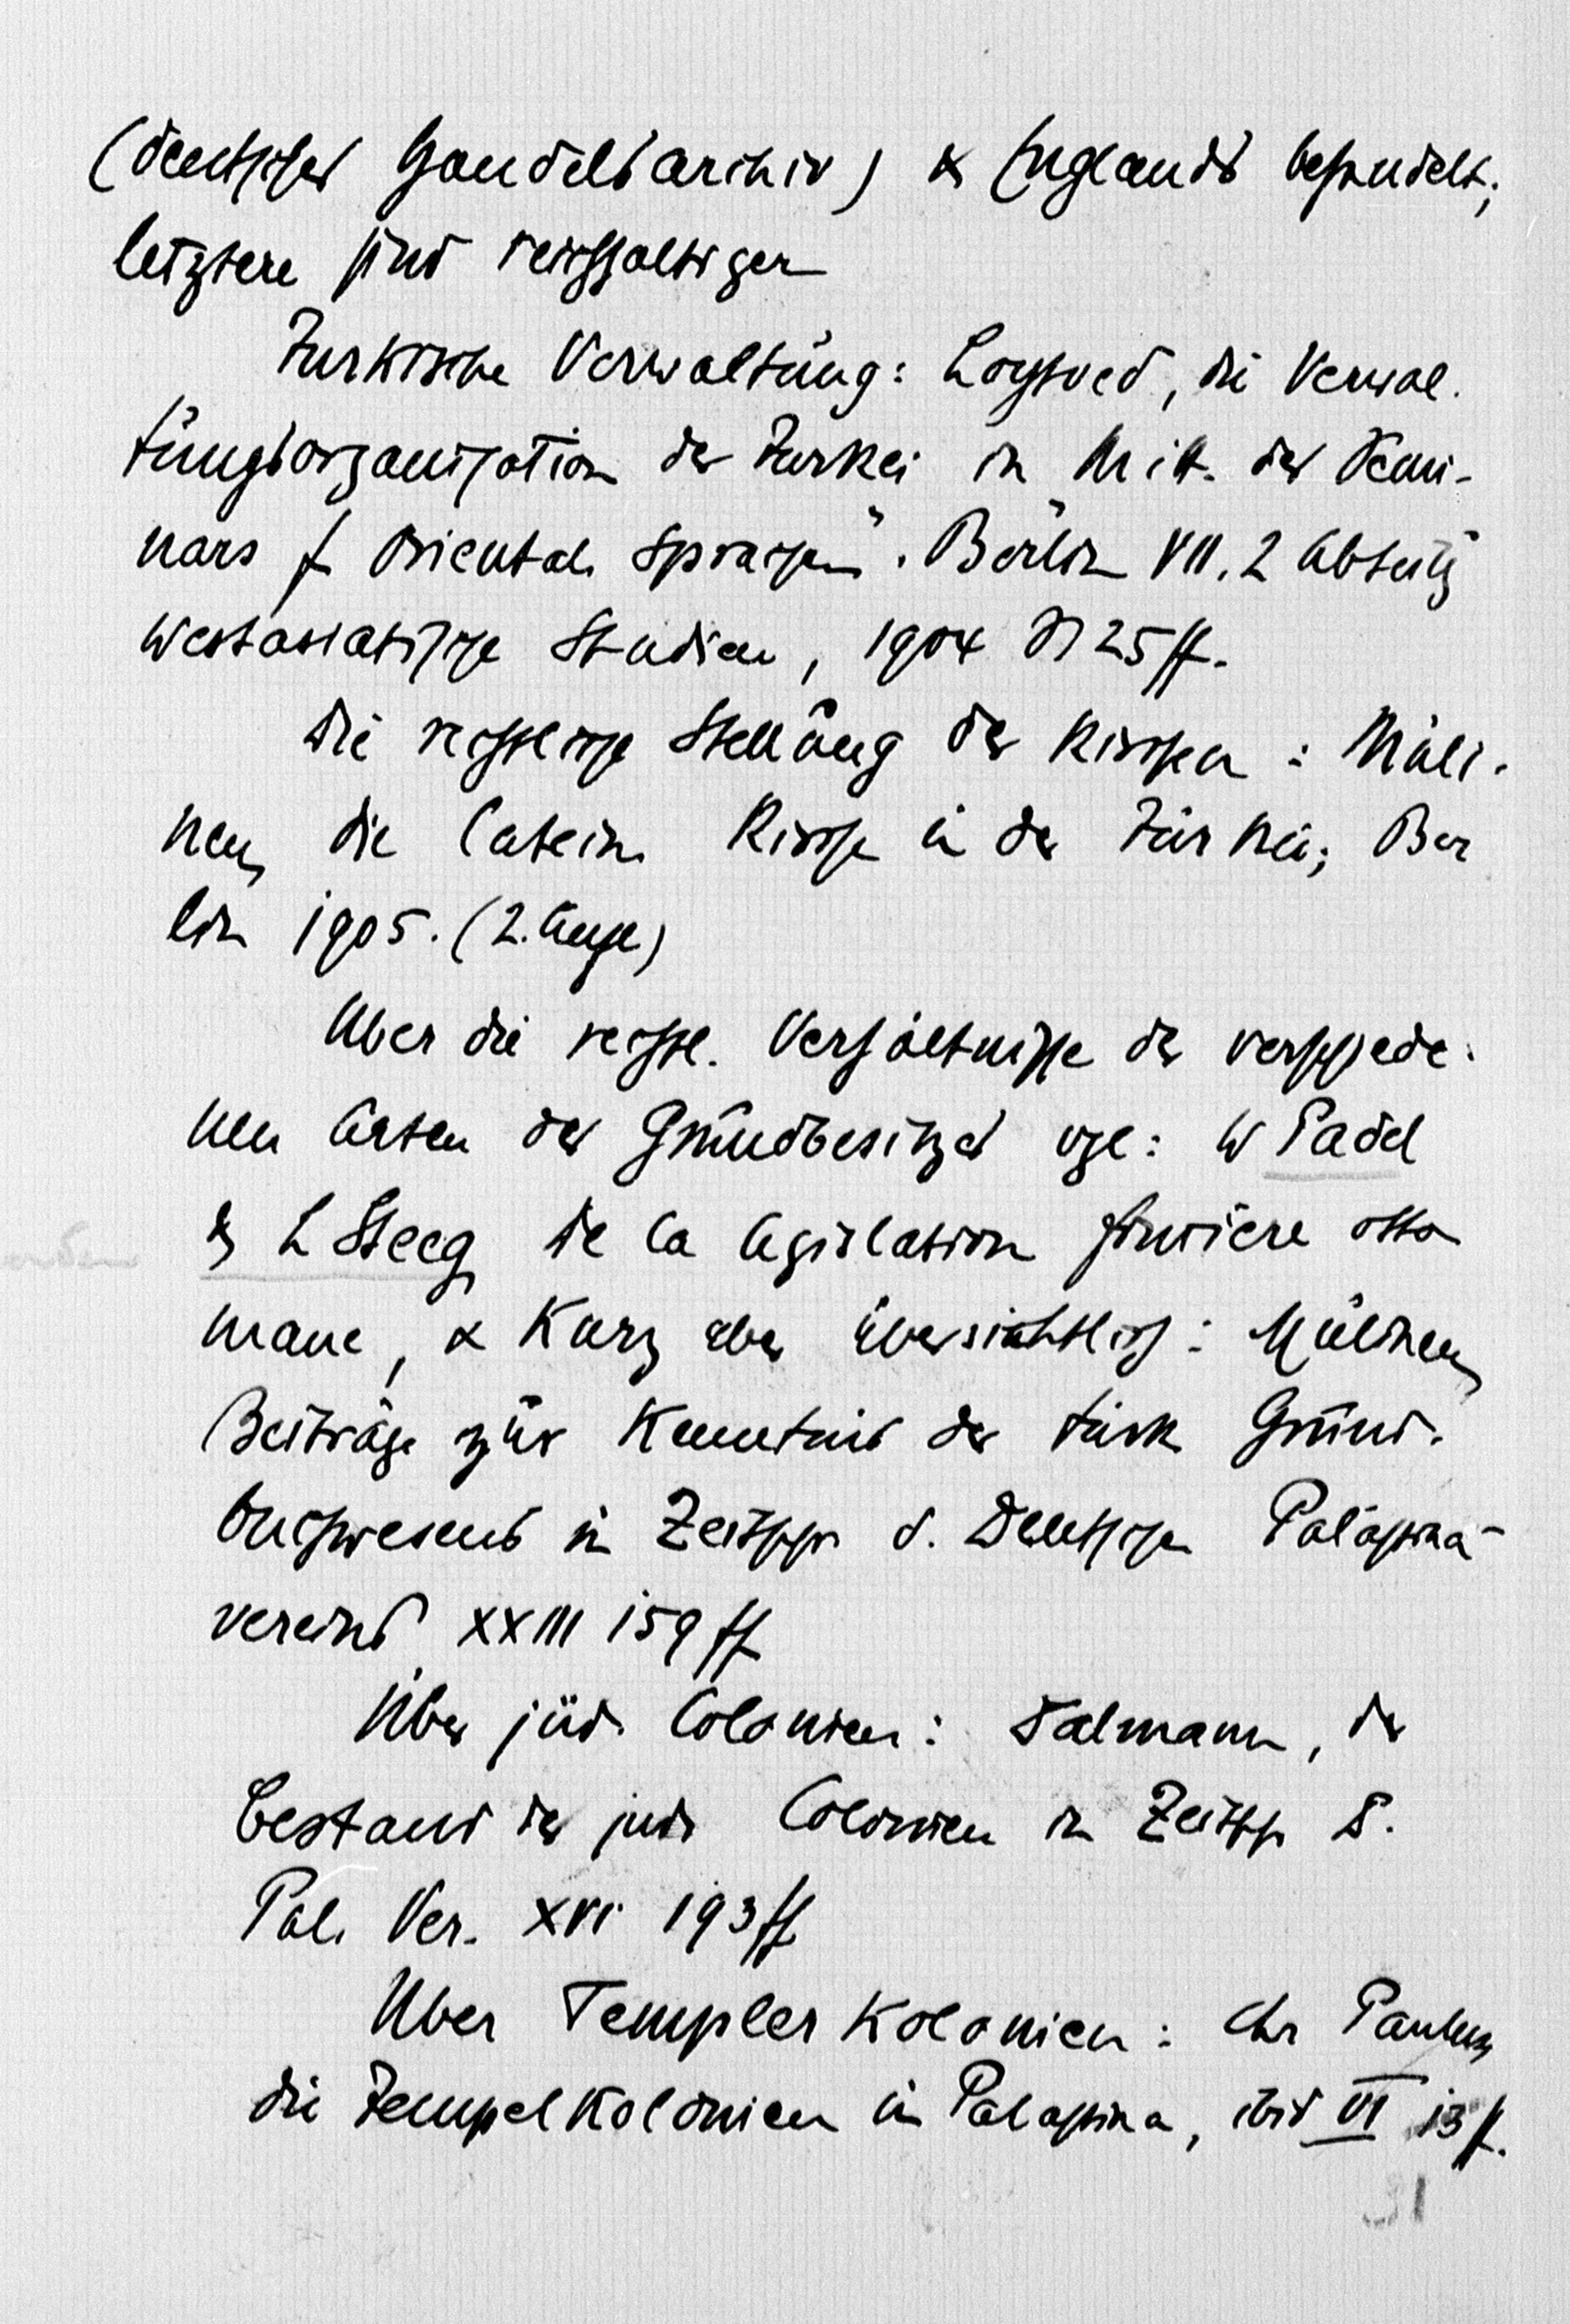 (deutsches Handelsarchiv) & Englands behandelt;
letztere sind reichhaltiger
Türkische Verwaltung: Loytved, die Verwal-
tungsorganisation der Türkei in Mitt. des Semi-
nars f Oriental. Sprachen". Berlin VII. 2 Abteilg
Westasiatische Studien, 1904 S 25 ff.
Die rechtliche Stellung der Kirchen: Müli-
nen, die latein. Kirche in der Türkei; Ber
lin 1905. (2. Aufl)
Uber die rechtl. Verhältnisse der verschiede-
nen Arten des Grundbesitzes vgl: W Padel
& L Steeg de la législation foncière otto
mane, & kurz aber übersichtlich: Mülinen,
Beiträge zur Kenntnis des türk Grund-
buchwesens in Zeitschr d. Deutschen Palästina-
vereins XXIII 159 ff
Über jüd. Colonien: Dalmann, der
Bestand der jüd. Colonien in Zeitsch D.
Pal. Ver. XVI 193 ff
Uber Templer Kolonien: Chr Paulus,
die Tempelkolonien in Palästina, ibid VI 13 f.
31